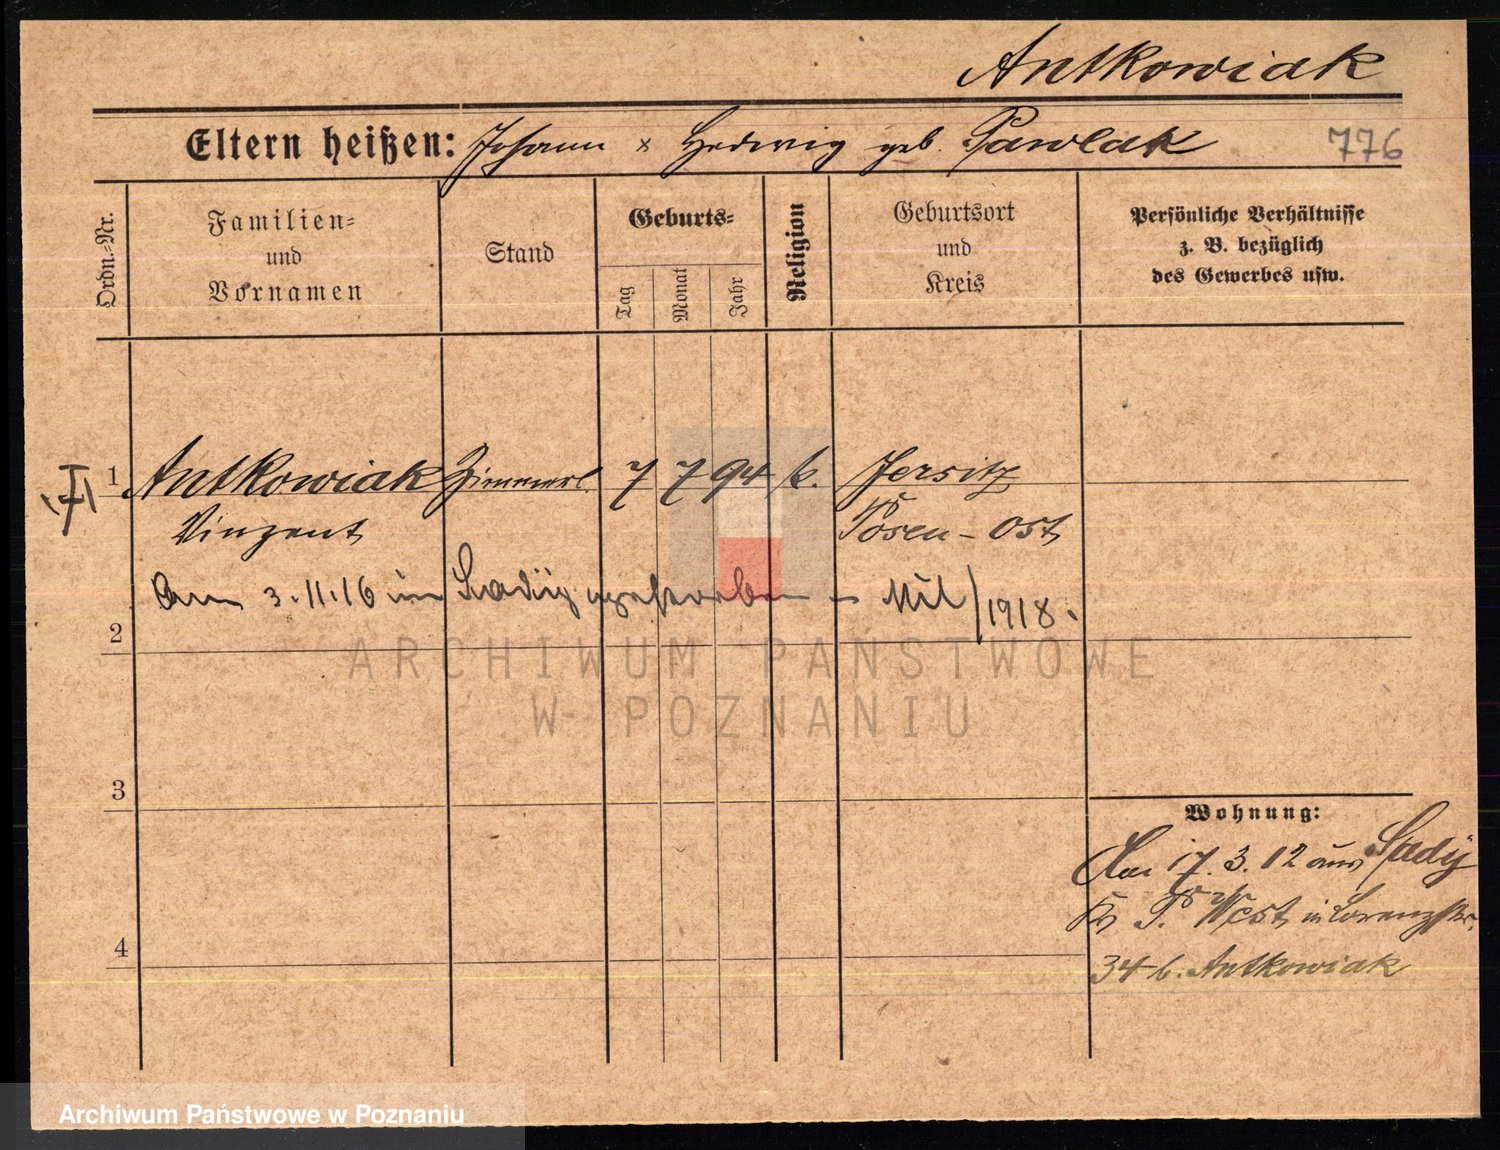 Antkowiak
Eltern heißen: Johann & Hedwig geb. Pawlak 776
Ordn.-Nr.
Familien-
und
Vornamen
Stand
Geburts-
Tag
Monat
Jahr
Religion
Geburtsort
und
Kreis
Persönliche Verhältnisse
z. B. bezüglich
des Gewerbes usw.
1 Antkowiak Zimmerl. 7 7 94 k. Jersitz
Vinzent Posen-Ost
Am 3.11.16 im gestorben Mil/1918.
2
ARCHIWUM PAŃSTWOWE
W POZNANIU
3
Wohnung:
Am 17.3.12 aus Sady
Kr P. West in Lorenzstr.
4
34 b. Antkowiak
Archiwum Państwowe w Poznaniu